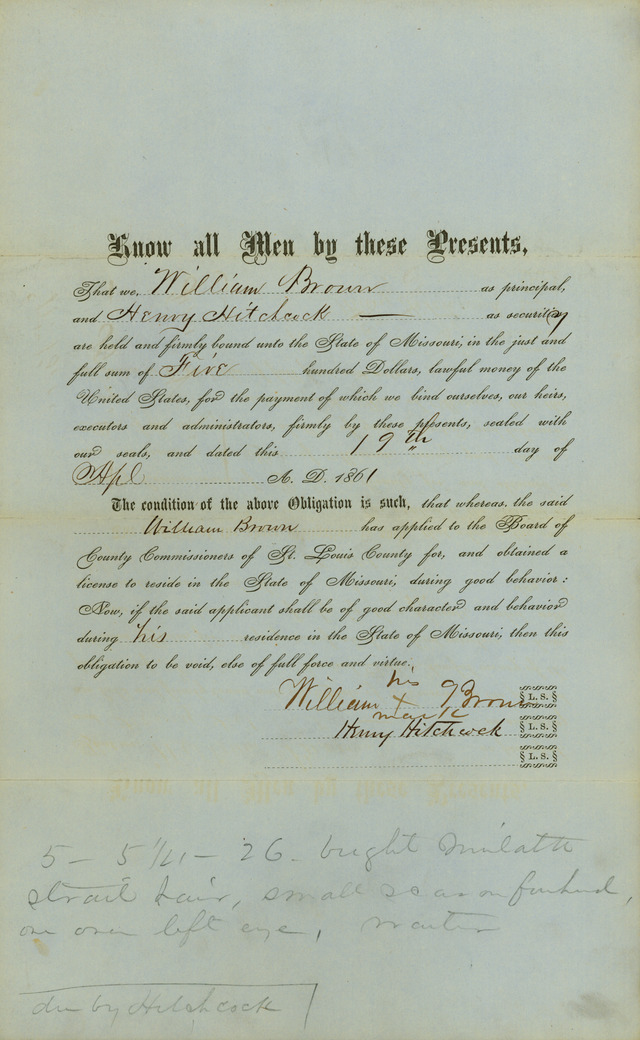 Know all Men by these Presents,
That we, William Brown as principal,
and Henry Hitchcock — as security
are held and firmly bound unto the State of Missouri, in the just and
full sum of Five hundred Dollars, lawful money of the
United States, for the payment of which we bind ourselves, our heirs,
executors and administrators, firmly by these presents, sealed with
our seals, and dated this 19th day of
Apl A. D. 1861
The condition of the above Obligation is such, that whereas, the said
William Brown has applied to the Board of
County Commissioners of St. Louis County for, and obtained a
license to reside in the State of Missouri, during good behavior:
Now, if the said applicant shall be of good character and behavior
during his residence in the State of Missouri, then this
obligation to be void, else of full force and virtue.
his
William X Brown L. S.
mark
Henry Hitchcock L. S.
L. S.
5 - 5 - 26 - bright Mulatto
strait hair, small scar on forehead,
one over left eye, waiter
by Hitchcock